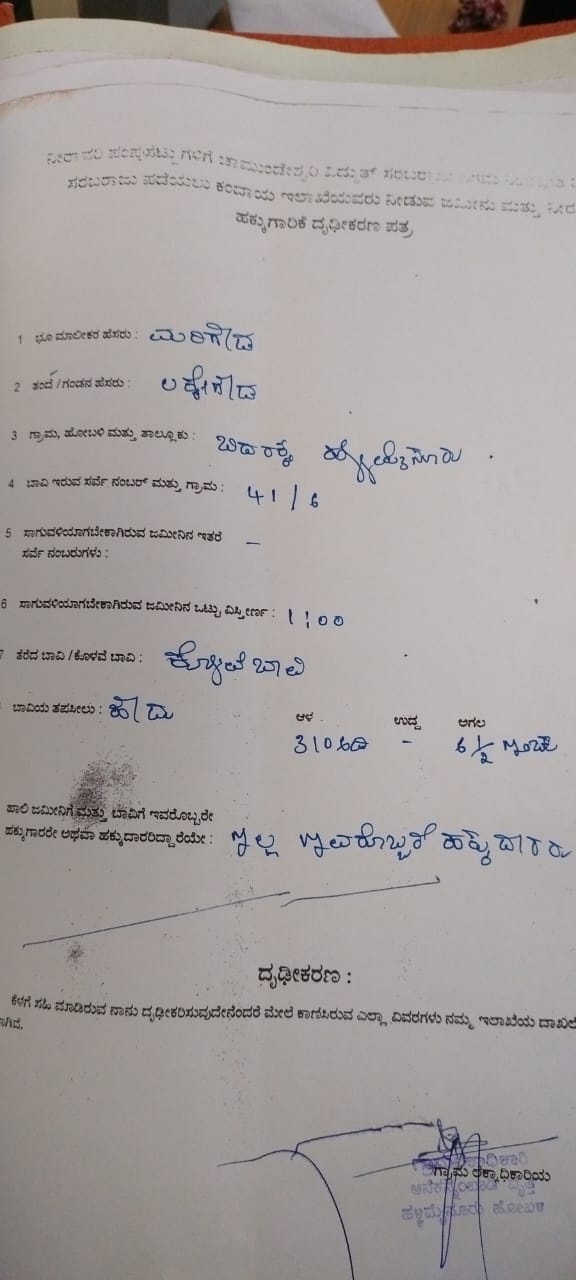 ನೀರಾವರಿ ಪಂಪ್ಸೆಟ್ಟುಗಳಿಗೆ ಚಾಮುಂಡೇಶ್ವರಿ ವಿದ್ಯುತ್ ಸರಬರಾಜು
ಸರಬರಾಜು ಪಡೆಯಲು ಕಂದಾಯ ಇಲಾಖೆಯವರು ನೀಡುವ ಜಮೀನು ಮತ್ತು
ಹಕ್ಕುಗಾರಿಕೆ ದೃಢೀಕರಣ ಪತ್ರ
1 ಭೂ ಮಾಲೀಕರ ಹೆಸರು : ಮರಿಗೌಡ
2 ತಂದೆ / ಗಂಡನ ಹೆಸರು : ಲಕ್ಕೇಗೌಡ
3 ಗ್ರಾಮ, ಹೋಬಳಿ ಮತ್ತು ತಾಲ್ಲೂಕು : ಬಿದರಕ್ಕೆ ಹಳ್ಳಿಮೈಸೂರು .
4 ಬಾವಿ ಇರುವ ಸರ್ವೆ ನಂಬರ್ ಮತ್ತು ಗ್ರಾಮ : 41/6
5 ಸಾಗುವಳಿಯಾಗಬೇಕಾಗಿರುವ ಜಮೀನಿನ ಇತರೆ –
ಸರ್ವೆ ನಂಬರುಗಳು :
6 ಸಾಗುವಳಿಯಾಗಬೇಕಾಗಿರುವ ಜಮೀನಿನ ಒಟ್ಟು ವಿಸ್ತೀರ್ಣ : 1:00
7 ತೆರೆದ ಬಾವಿ / ಕೊಳವೆ ಬಾವಿ : ಕೊಳವೆ ಬಾವಿ
ಬಾವಿಯ ತಪಸೀಲು : ಹೌದು ಆಳ ಉದ್ದ ಅಗಲ
310 ಅಡಿ - 6½ ಇಂಚು
ಹಾಲಿ ಜಮೀನಿಗೆ ಮತ್ತು ಬಾವಿಗೆ ಇವರೊಬ್ಬರೇ
ಹಕ್ಕುಗಾರರೇ ಅಥವಾ ಹಕ್ಕುದಾರರಿದ್ದಾರೆಯೇ : ಇಲ್ಲ ಇವರೊಬ್ಬರೆ ಹಕ್ಕುದಾರರು
ದೃಢೀಕರಣ :
ಕೆಳಗೆ ಸಹಿ ಮಾಡಿರುವ ನಾನು ದೃಢೀಕರಿಸುವುದೇನೆಂದರೆ ಮೇಲೆ ಕಾಣಿಸಿರುವ ಎಲ್ಲಾ ವಿವರಗಳು ನಮ್ಮ ಇಲಾಖೆಯ ದಾಖಲೆ
ಾಗಿವೆ.
ಗ್ರಾಮ ಲೆಕ್ಕಾಧಿಕಾರಿಯ
ವೃತ್ತ
ಹಳ್ಳಿಮೈಸೂರು ಹೋಬಳಿ